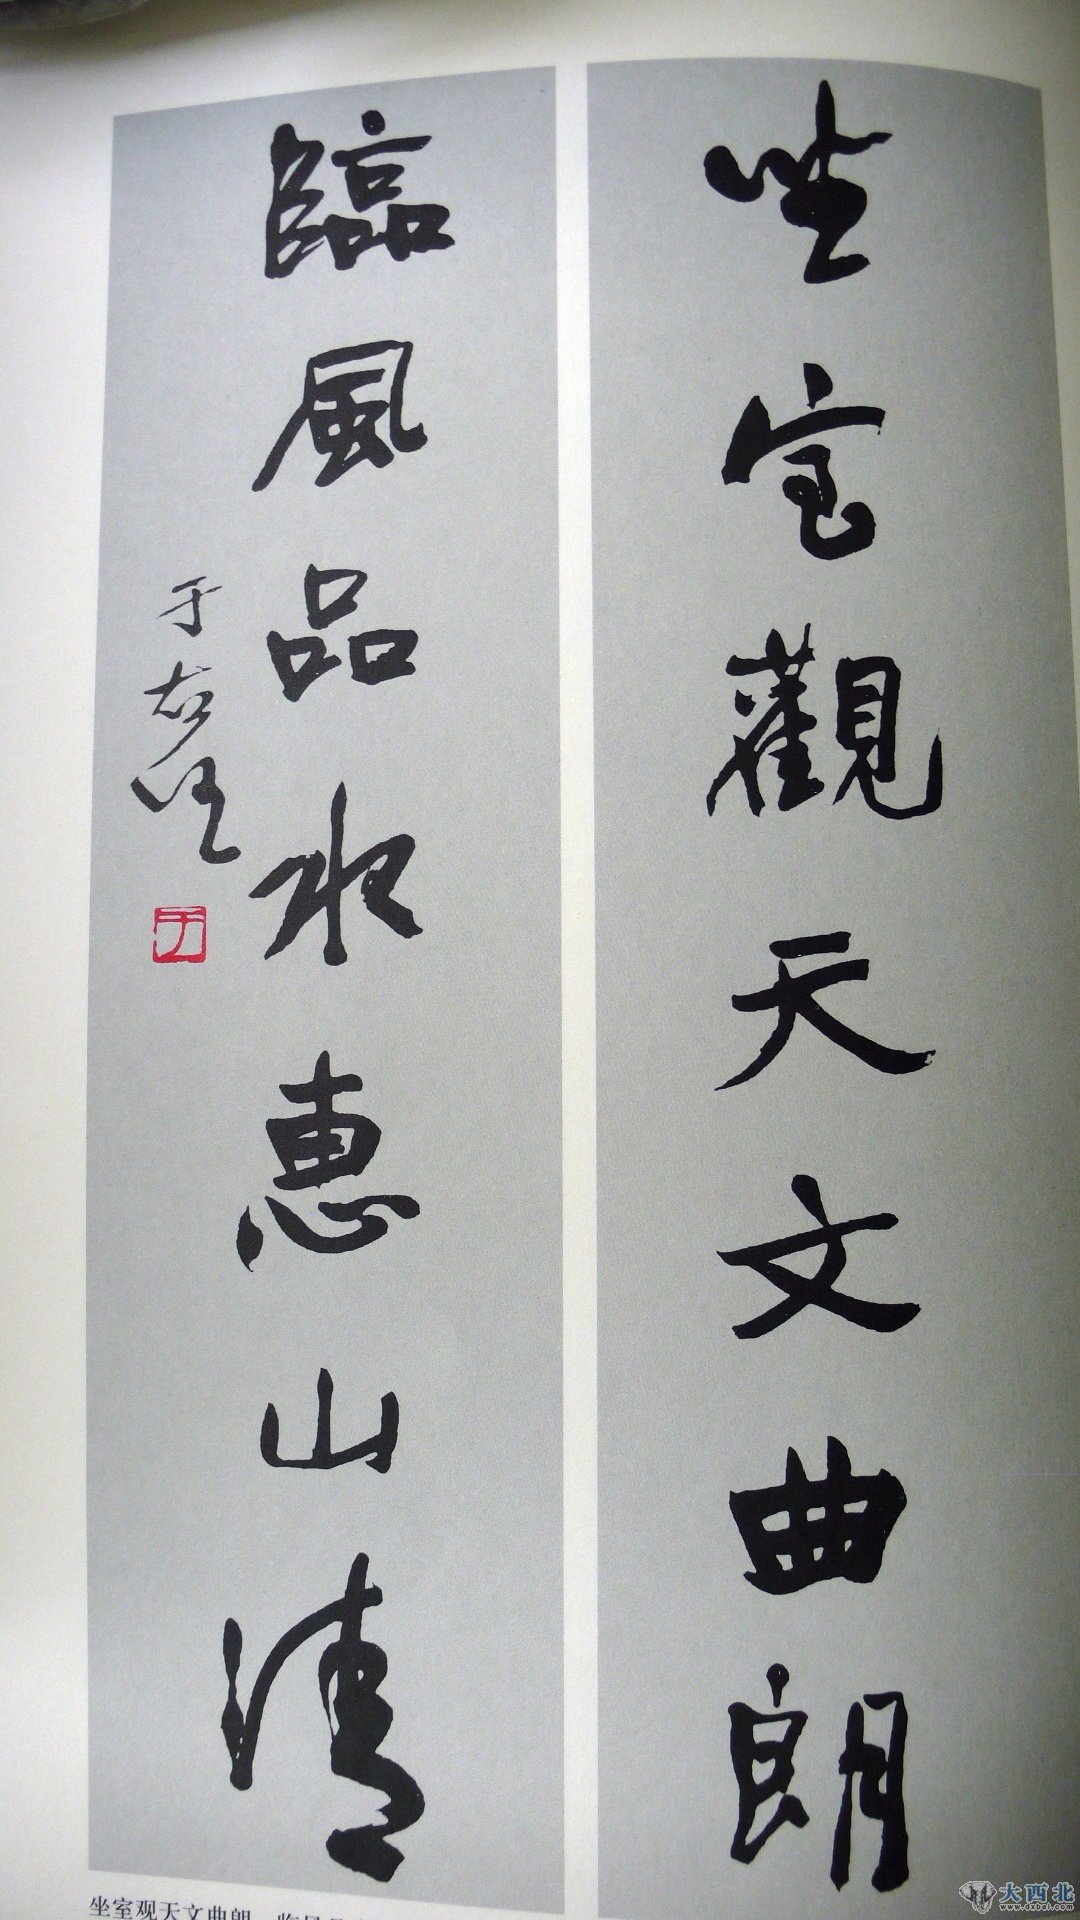 坐室觀天文曲朗
臨風品水惠山清
于右任
坐室观天文曲朗 临风
大西北
www.dxbei.com